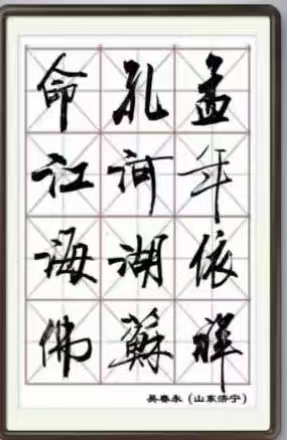 命孔孟
江河年
海湖依
佛蘇祥
吴春永（山东济宁）